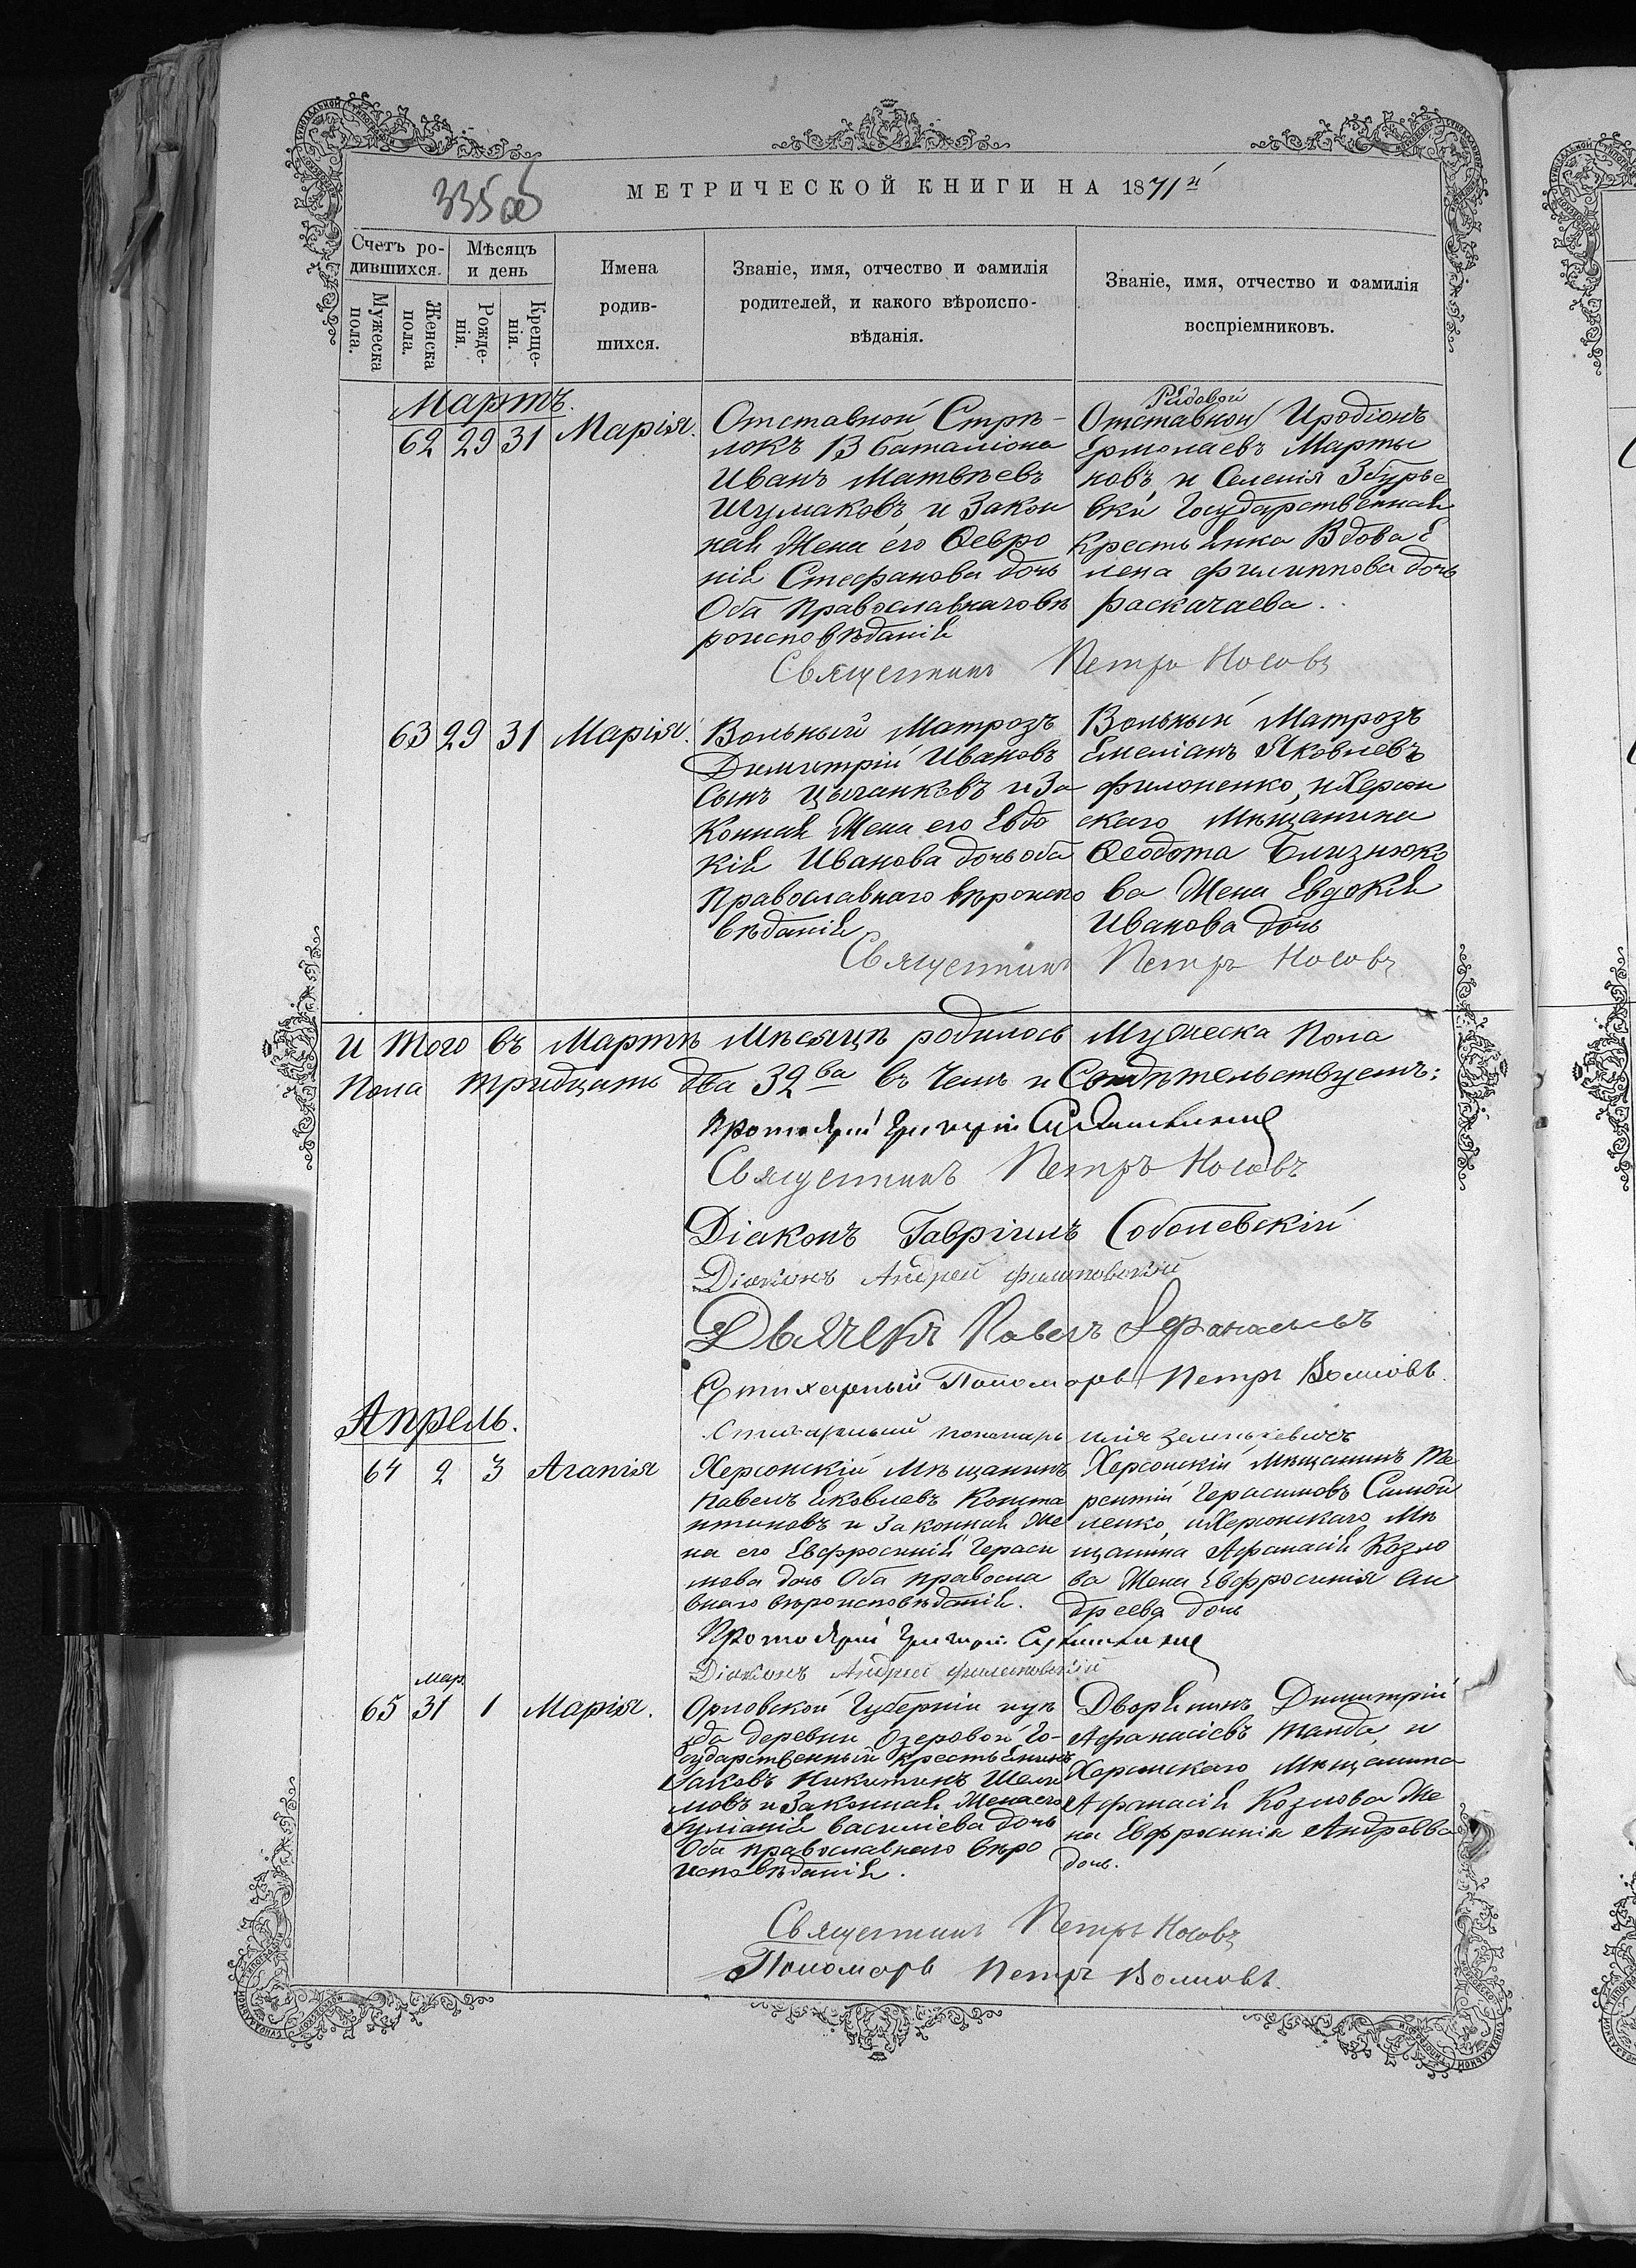 335 об
МЕТРИЧЕСКОЙ КНИГИ НА 1871й
Счетъ ро-
дившихся.
Мужеска
пола.
Женска
пола.
Мѣсяцъ
и день
Рожде-
нія.
Креще-
нія.
Имена
родив-
шихся.
Званіе, имя, отчество и фамилія
родителей, и какого вѣроиспо-
вѣданія.
Званіе, имя, отчество и фамилія
воспріемниковъ.
Мартъ.
62 29 31 Марія.
Отставной Стрѣ-
локъ 13 баталіона
Иванъ Матвѣевъ
Шумаковъ и Закон
ная Жена его Ѳевро
нія Стефанова дочь
Оба Православнаго вѣ
роисповѣданія
Рядовой
Отставной Иродіонъ
Ермолаевъ Марты
новъ и Селенія Збурье
вки Государственная
Крестьянка Вдова Е
лена Филиппова дочь
Раскачаева.
Священникъ Петръ Носовъ
63 29 31 Марія.
Вольный Матрозъ
Димитрій Ивановъ
Сынъ Цыганковъ и За
Конная Жена его Евдо
кія Иванова дочь оба
Православнаго вѣроиспо
вѣданія
Вольный Матрозъ
Емеліанъ Яковлевъ
Филоненко, и Херсон
скаго Мѣщанина
Ѳеодота Близнюко
ва Жена Евдокія
Иванова дочь
Священникъ Петръ Носовъ
И Того въ Мартѣ Мѣсяцѣ родилось Мужеска Пола
Пола тридцать два 32ва въ Чемъ и Свидѣтельствуемъ:
Протоіерей Григорій
Священникъ Петръ Носовъ
Діаконъ Гавріилъ Соболевскій
Діаконъ Андрей Филиповскій
Дьячекъ Павелъ Афанасьевъ
Стихарный Пономарь Петръ Волковъ.
Стихарный пономарь Илія Зеленкевичъ
Апрель.
64 2 3 Агапія
Херсонскій Мѣщанинъ
Павелъ Яковлевъ Конста
нтиновъ и Законная Же
на его Евфросинія Гераси
мова дочь Оба Правосла
внаго вѣроисповѣданія.
Херсонскій Мѣщанинъ Те
рентій Герасимовъ Самой
ленко, и Херсонскаго Мѣ
щанина Афанасія Козло
ва Жена Евфросинія Ан
дреева дочь
Протоіерей Григорій
Діаконъ Андрей Филиповскій
Мар.
65 31 1 Марія.
Орловской Губерніи уѣз
да деревни Озеровой Го-
сударственный крестьянинъ
Іаковъ Никитинъ
мовъ и Законная Жена его
Іуліанія Василіева дочь
Оба православнаго вѣро
исповѣданія.
Дворянинъ Димитрій
Афанасіевъ Танда, и
Херсонскаго Мѣщанина
Афанасія Козлова Же
на Евфросинія Андреева
дочь.
Священникъ Петръ Носовъ
Пономарь Петръ Волковъ.